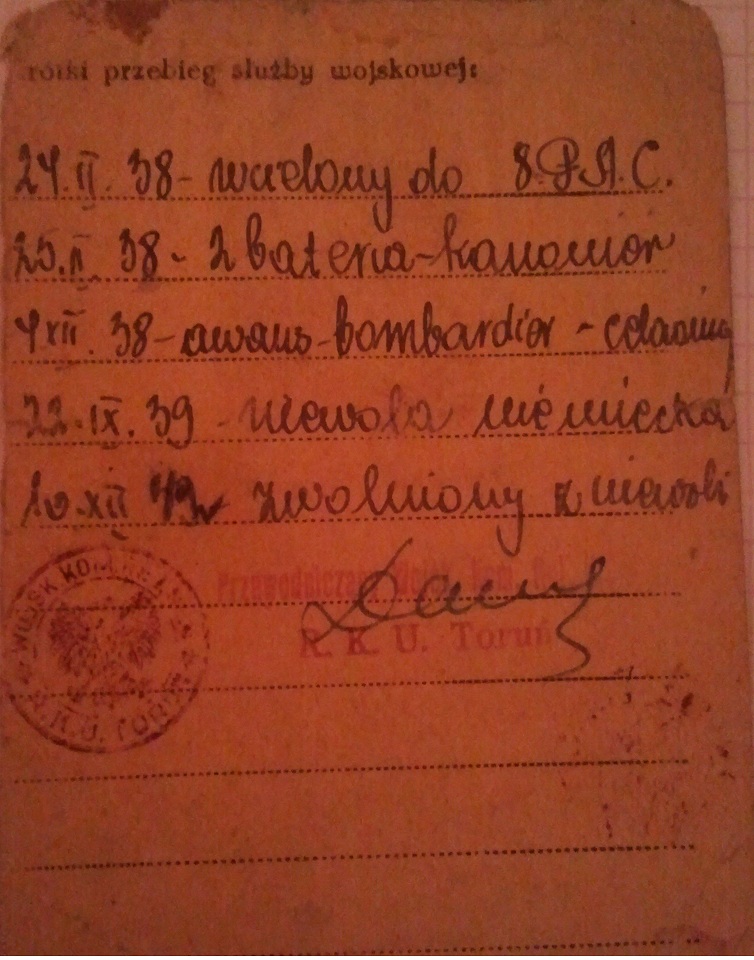 rótki przebieg służby wojskowej:
24.II. 38 - wcielony do 8.P.A.C.
25.II 38 - 2 bateria - kanonier
4 XII. 38 - awans - bombardier - celowniczy
22.IX.39 - niewola niemiecka
10.XII zwolniony z niewoli
WOJSK
Przewodniczący
R. K. U. Toruń
R.K.U. TORUŃ